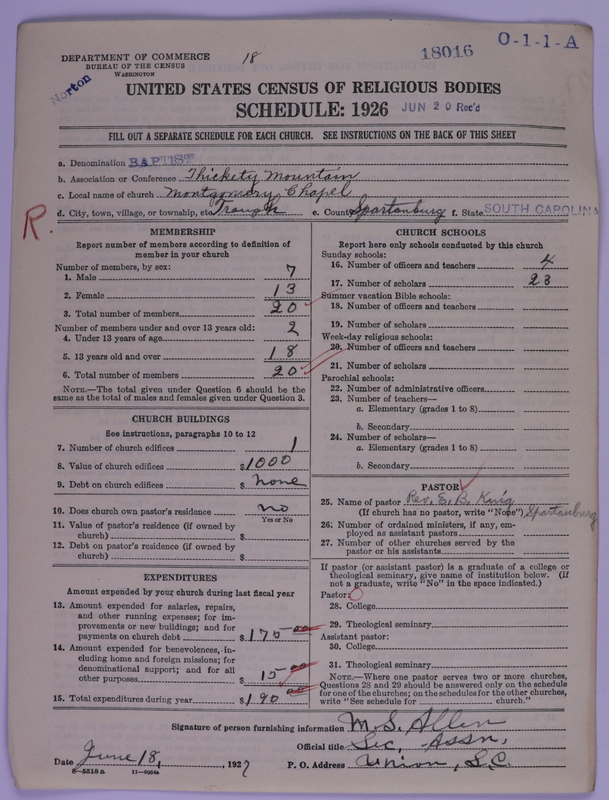 DEPARTMENT OF COMMERCE
BUREAU OF THE CENSUS
WASHINGTON
18
18016
O-1-1-A
Norton
UNITED STATES CENSUS OF RELIGIOUS BODIES
SCHEDULE: 1926 JUN 20 Rec'd
FILL OUT A SEPARATE SCHEDULE FOR EACH CHURCH. SEE INSTRUCTIONS ON THE BACK OF THIS SHEET
a. Denomination BAPTIST
b. Association or Conference Thickety Mountain
c. Local name of church Montgomery Chapel
d. City, town, village, or township, etc. Trough e. County Spartanburg f. State SOUTH CAROLINA
R.
MEMBERSHIP
Report number of members according to definition of
member in your church
Number of members, by sex:
1. Male 7
2. Female 13
3. Total number of members 20
Number of members under and over 13 years old:
4. Under 13 years of age 2
5. 13 years old and over 18
6. Total number of members 20
NOTE.—The total given under Question 6 should be the
same as the total of males and females given under Question 3.
CHURCH BUILDINGS
See instructions, paragraphs 10 to 12
7. Number of church edifices 1
8. Value of church edifices $1000
9. Debt on church edifices $ none
10. Does church own pastor's residence no
Yes or No
11. Value of pastor's residence (if owned by
church) $
12. Debt on pastor's residence (if owned by
church) $
EXPENDITURES
Amount expended by your church during last fiscal year
13. Amount expended for salaries, repairs,
and other running expenses; for im-
provements or new buildings; and for
payments on church debt $ 175 00
14. Amount expended for benevolences, in-
cluding home and foreign missions; for
denominational support; and for all
other purposes 15 00
15. Total expenditures during year $ 190 00
CHURCH SCHOOLS
Report here only schools conducted by this church
Sunday schools:
16. Number of officers and teachers 4
17. Number of scholars 23
Summer vacation Bible schools:
18. Number of officers and teachers
19. Number of scholars
Week-day religious schools:
20. Number of officers and teachers
21. Number of scholars
Parochial schools:
22. Number of administrative officers
23. Number of teachers—
a. Elementary (grades 1 to 8)
b. Secondary
24. Number of scholars—
a. Elementary (grades 1 to 8)
b. Secondary
PASTOR
25. Name of pastor Rev. E. B.
(If church has no pastor, write "None") Spartanburg
26. Number of ordained ministers, if any, em-
ployed as assistant pastors
27. Number of other churches served by the
pastor or his assistants
If pastor (or assistant pastor) is a graduate of a college or
theological seminary, give name of institution below. (If
not a graduate, write "No" in the space indicated.)
Pastor:
28. College
29. Theological seminary
Assistant pastor:
30. College
31. Theological seminary
NOTE.—Where one pastor serves two or more churches,
Questions 28 and 29 should be answered only on the schedule
for one of the churches; on the schedules for the other churches,
write "See schedule for church."
Signature of person furnishing information M. S. Allen
Official title Sec, Assn,
Date June 18, 1927 P. O. Address Union, S.C.
8—5518 a 11—9054a